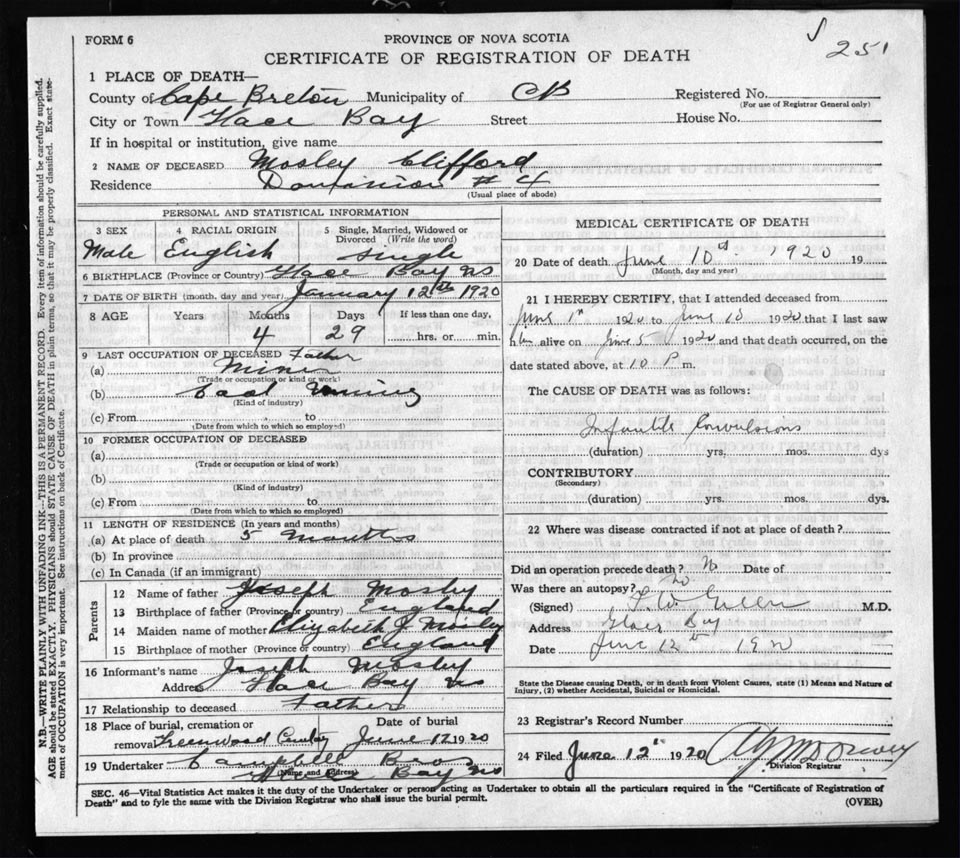 251
FORM 6
PROVINCE OF NOVA SCOTIA
CERTIFICATE OF REGISTRATION OF DEATH
1 PLACE OF DEATH—
County of Cape Breton Municipality of CB Registered No.
(For use of Registrar General only)
City or Town Glace Bay Street House No.
If in hospital or institution, give name
2 NAME OF DECEASED Mosley Clifford
Residence Dominion # 4
(Usual place of abode)
PERSONAL AND STATISTICAL INFORMATION
3 SEX 4 RACIAL ORIGIN 5 Single, Married, Widowed or Divorced (Write the word)
Male English Single
6 BIRTHPLACE (Province or Country) Glace Bay NS
7 DATE OF BIRTH (month, day and year) January 12th 1920
8 AGE Years Months Days If less than one day,
4 29 hrs. or min.
9 LAST OCCUPATION OF DECEASED Father
(a) Miner
(Trade or occupation or kind or work)
(b) Coal Mining
(Kind of industry)
(c) From to
(Date from which to which so employed)
10 FORMER OCCUPATION OF DECEASED
(a)
(Trade or occupation or kind of work)
(b)
(Kind of industry)
(c) From to
(Date from which to which so employed)
11 LENGTH OF RESIDENCE (In years and months)
(a) At place of death 5 Months
(b) In province
(c) In Canada (if an immigrant)
Parents
12 Name of father Joseph Mosley
13 Birthplace of father (Province or country) England
14 Maiden name of mother Elizabeth J Mosley
15 Birthplace of mother (Province or country) England
16 Informant's name Joseph Mosley
Address Glace Bay NS
17 Relationship to deceased Father
18 Place of burial, cremation or removal Greenwood Cemetery Date of burial June 12 1920
19 Undertaker Campbell Bros
(Name and address) Glace Bay NS
MEDICAL CERTIFICATE OF DEATH
20 Date of death June 10th 1920 19
(Month, day and year)
21 I HEREBY CERTIFY, that I attended deceased from
June 1st 1920 to June 10 1920 that I last saw
h im alive on June 5 1920 and that death occurred, on the
date stated above, at 10 P m.
The CAUSE OF DEATH was as follows:
Infantile Convulsions
(duration) yrs. mos. dys
CONTRIBUTORY
(Secondary)
(duration) yrs. mos. dys.
22 Where was disease contracted if not at place of death?
Did an operation precede death? No Date of
Was there an autopsy? No
(Signed) Green M.D.
Address Glace Bay
Date June 12th 1920
State the Disease causing Death, or in death from Violent Causes, state (1) Means and Nature of
Injury, (2) whether Accidental, Suicidal or Homicidal.
23 Registrar's Record Number
24 Filed June 12th 1920
Division Registrar
SEC. 46—Vital Statistics Act makes it the duty of the Undertaker or person acting as Undertaker to obtain all the particulars required in the "Certificate of Registration of
Death" and to fyle the same with the Division Registrar who shall issue the burial permit.
(OVER)
N.B.—WRITE PLAINLY WITH UNFADING INK—THIS IS A PERMANENT RECORD. Every item of information should be carefully supplied.
AGE should be stated EXACTLY. PHYSICIANS should STATE CAUSE OF DEATH in plain terms, so that it may be properly classified. Exact state-
ment of OCCUPATION is very important. See instructions on back of Certificate.